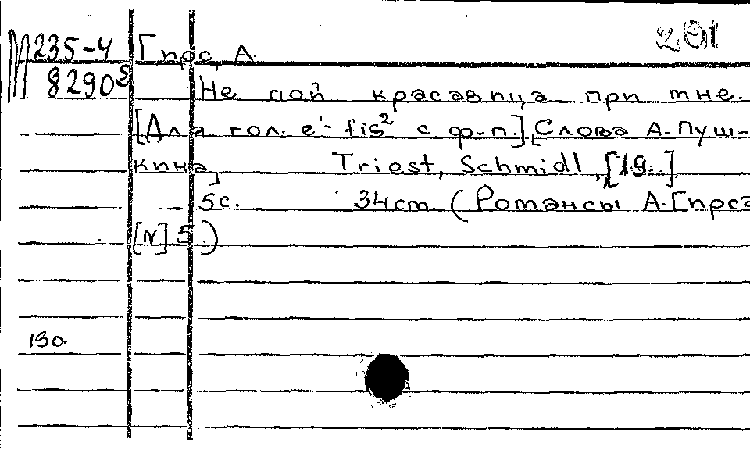 201
М235-4 Гирс, А.
8290
Не пой красавица при мне.
[Для гол. e'- fis² с ф-п.] [Слова А. Пуш-
кина]
Triest, Schmidl, [19..]
5с. 34cm (Романсы А. Гирса
[N] 5.)
130